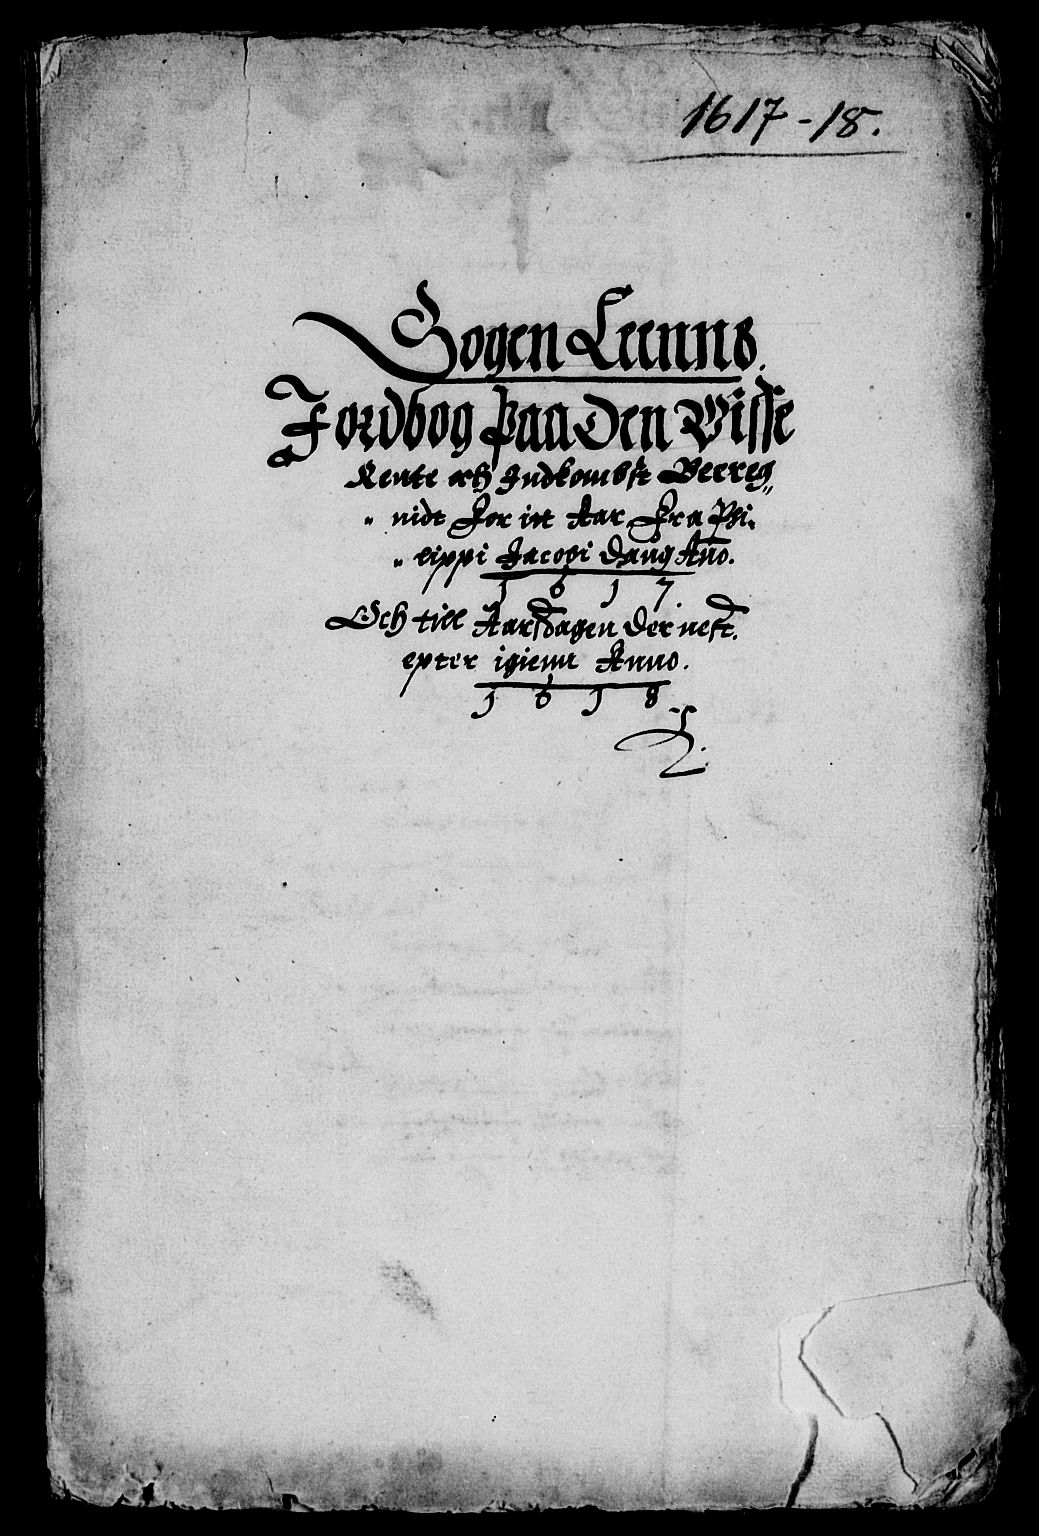 1617-18.
Bogen Leenns.
Jordbog paa Den Visse
Rente och Indkombst Beereg„
„ nidt for itt Aar Fra Phi„
„ lippi Jacobi Daug Año.
1 6 1 7.
Och till Aarsdagen der nest.
epter igienn Anno.
1 6 1 8